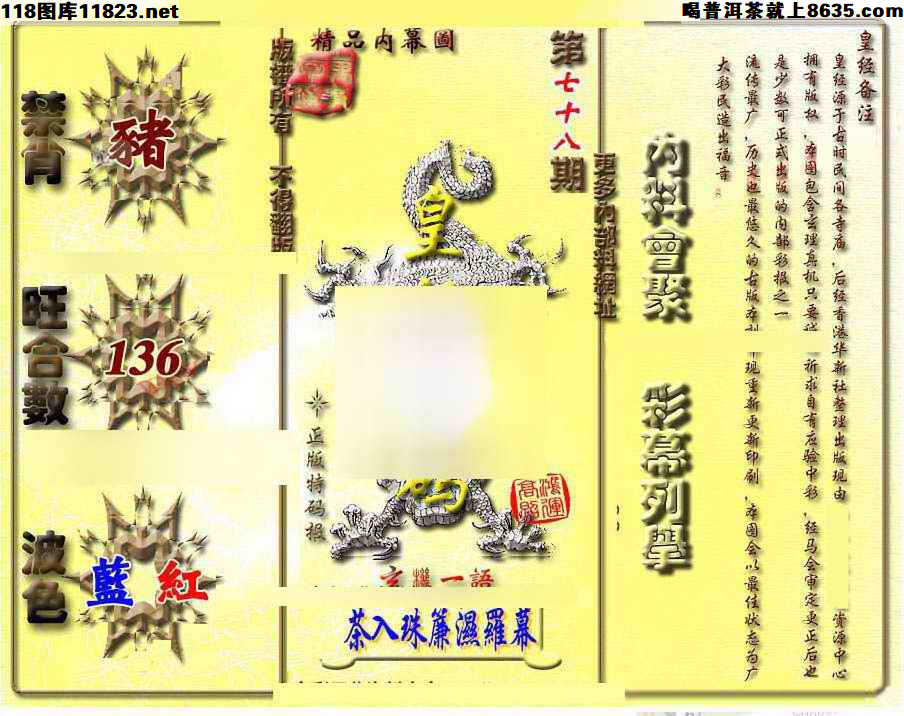 118图库11823.net
喝普洱茶就上8635.com
精品内幕圖
版權所有 不得翻版
第七十八期
更多內部料網址
禁肖
豬
旺合數
136
波色
藍 紅
皇
碼
正版特码报
鴻運高照
玄機一語
茶入珠簾濕羅幕
內料會聚
彩幕列舉
皇经备注
皇经源于古时民间各寺庙,后经香港华新社整理出版现由
资源中心
拥有版权,本图包含玄理真机只要
祈求自有应验中彩,经马会审定更正后也
是少数可正式出版的内部彩报之一
流传最广,历史也最悠久的古版本
现重新更新印刷,本图会以最佳状态为广
大彩民造出福音